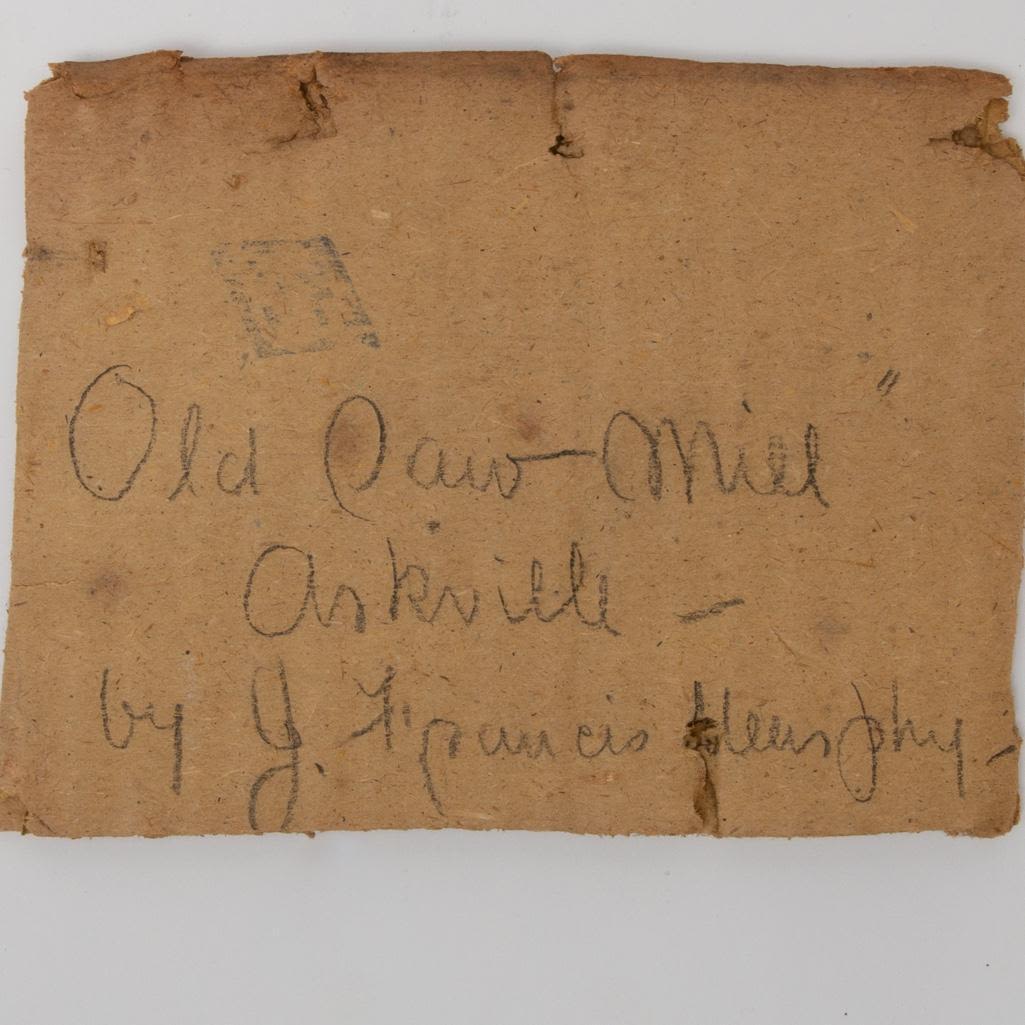 Old Saw-Mill"
Arkville -
by J. Francis Murphy -